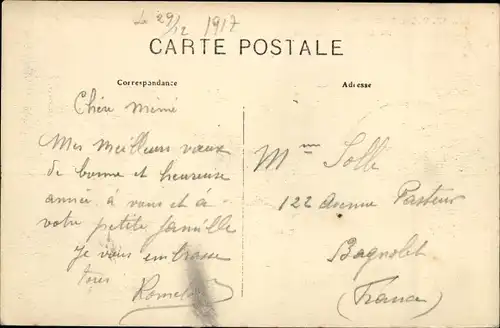 Le 29/12 1917
CARTE POSTALE
Correspondance
Adresse
Chère mémé
Mes meilleurs vœux
de bonne et heureuse
année, à vous et à
votre petite famille
Je vous embrasse
tous
Mme Solle
122 Avenue Pasteur
Bagnolet
(France)